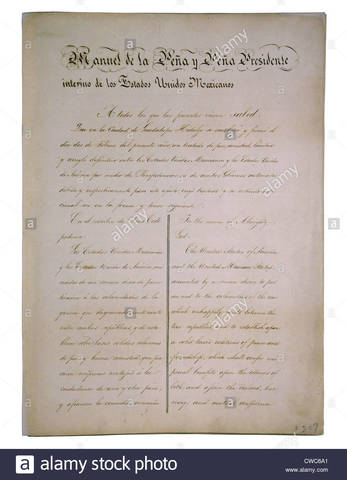 Manuel de la Peña y Peña Presidente
interino de los Estados Unidos Mexicanos
A todos los que las presentes vieren salud
Que en la Ciudad de Guadalupe Hidalgo se
dos de Febrero del presente año, un tratado de paz, amistad, límites
y arreglo definitivo entre los Estados Unidos Mexicanos y los Estados Unidos
de América por medio de Plenipotenciarios de ambos Gobiernos
En el nombre de Dios Todo
poderoso
Los Estados Unidos Mexicanos
y los Estados Unidos de América, ani
mados de un sincero deseo de poner
término á las calamidades de la
guerra que desgraciadamente existe
entre ambas repúblicas, y de esta
blecer sobre bases sólidas relaciones
de paz y buena amistad, que pro
curen recíprocas ventajas á los
ciudadanos de uno y otro pais,
y afiancen la concordia, armonía
In the name of Almighty
God.
The United States of America
and the United Mexican States,
animated by a sincere desire to put
an end to the calamities of the war
which unhappily exists between the
two republics, and to establish upon
a solid basis relations of peace and
friendship, which shall confer reci
procal benefits upon the citizens of
both, and assure the concord, har
mony, and mutual confidence
alamy
alamy stock photo
CWC6A1
www.alamy.com